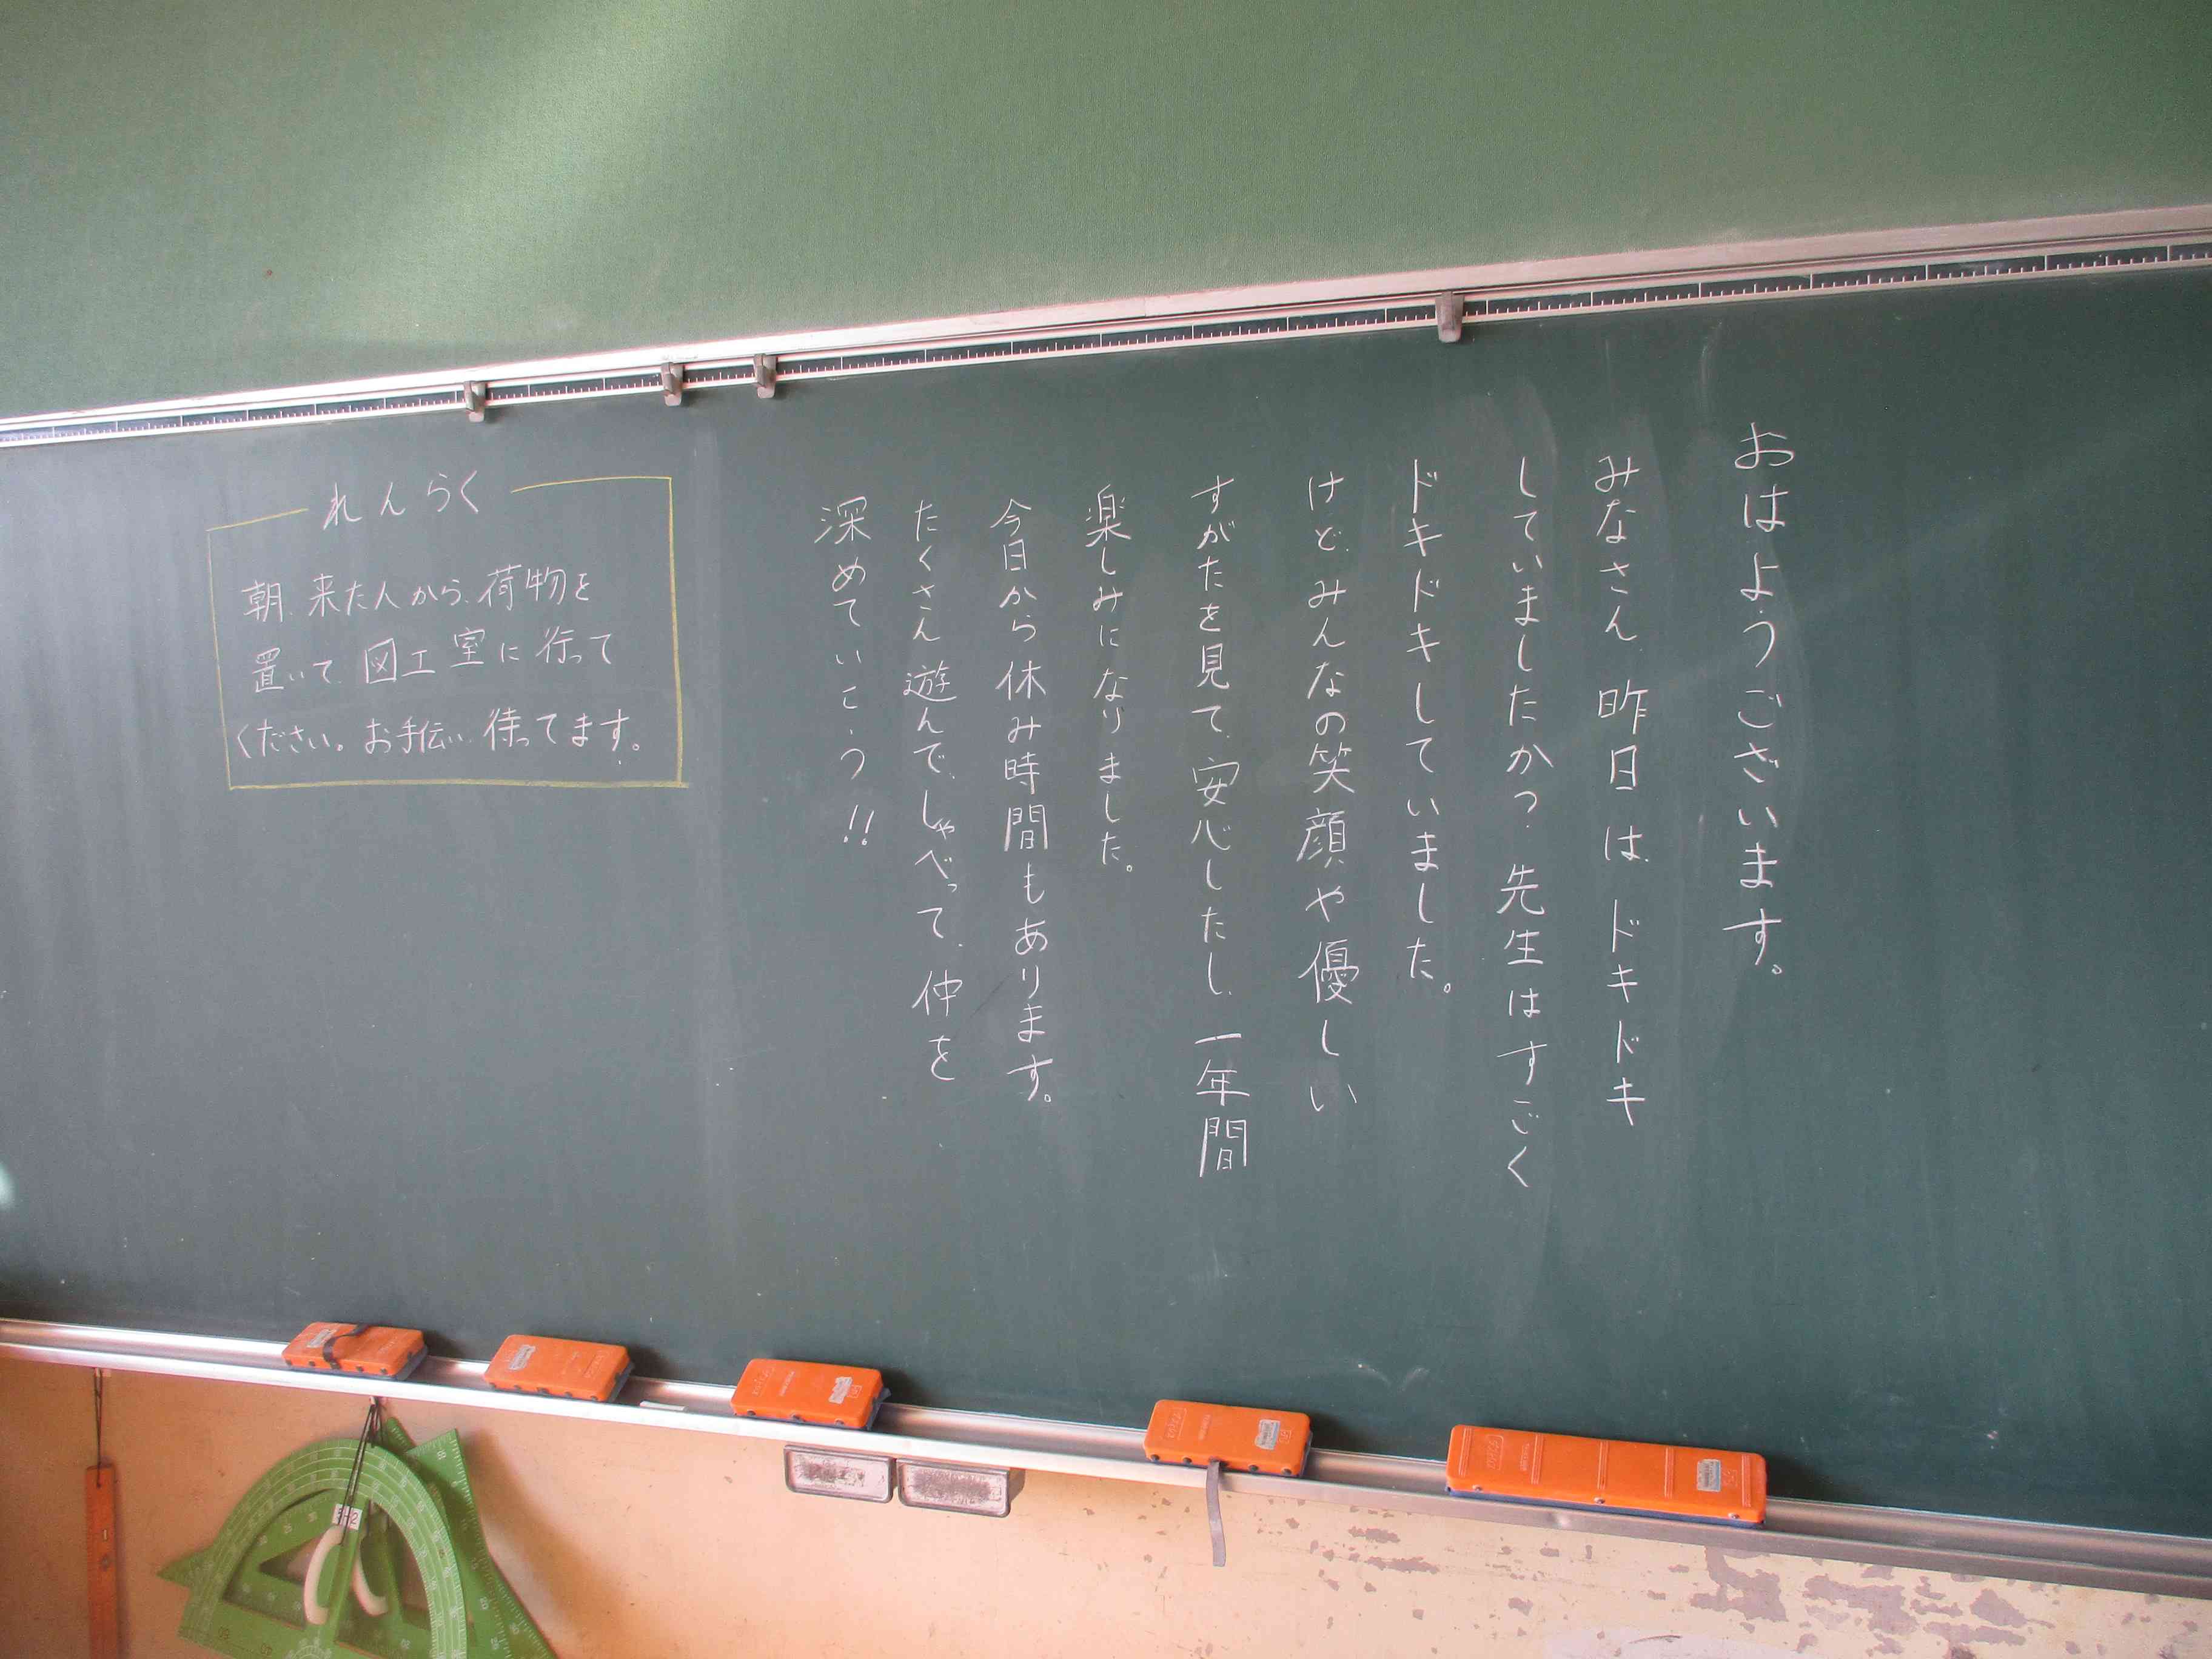 おはようございます。
みなさん、昨日は、ドキドキ
していましたか？先生はすごく
ドキドキしていました。
けど、みんなの笑顔や優しい
すがたを見て、安心したし、一年間
楽しみになりました。
今日から休み時間もあります。
たくさん遊んで、しゃべって、仲を
深めていこう!!
れんらく
朝、来た人から、荷物を
置いて、図工室に行って
ください。お手伝い、待ってます。
3-2